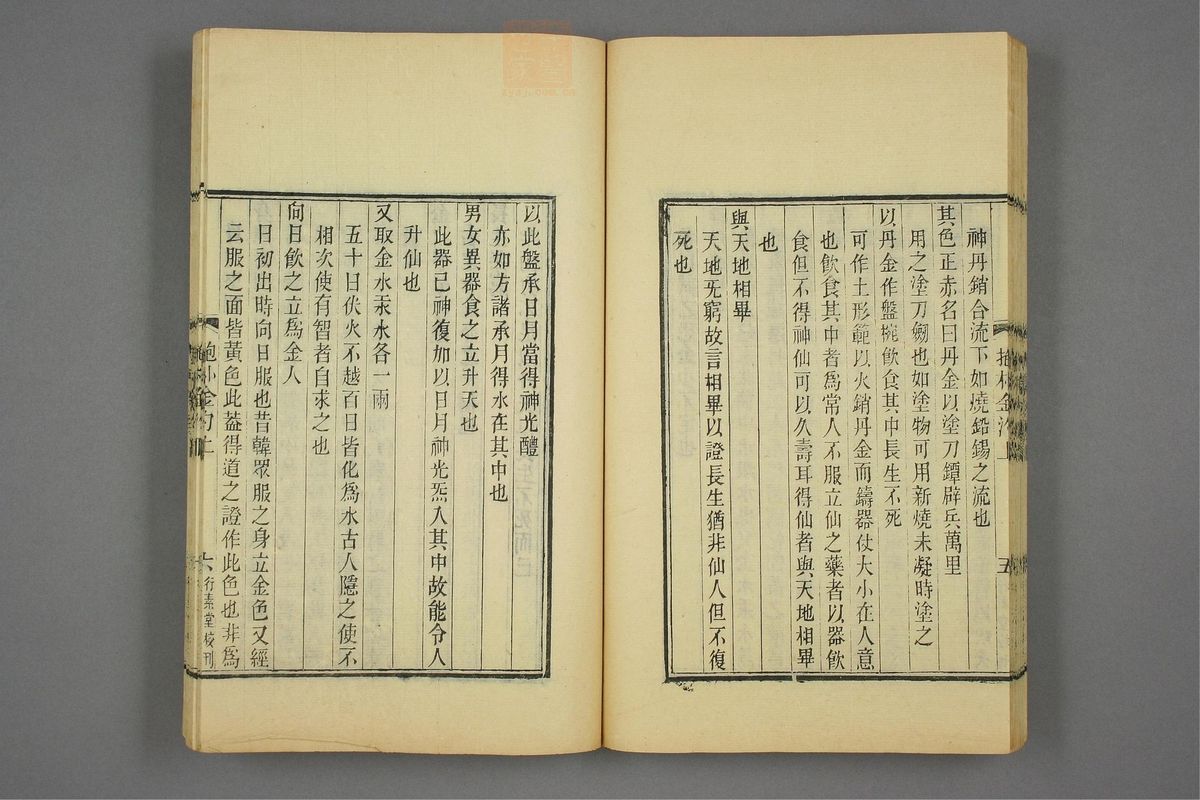 神丹銷合流下如燒鉛錫之流也
其色正赤名曰丹金以塗刀鐔辟兵萬里
用之塗刀劒也如塗物可用新燒未凝時塗之
以丹金作盤椀飲食其中長生不死
可作土形範以火銷丹金而鑄器仗大小在人意
也飲食其中者爲常人不服立仙之藥者以器飲
食但不得神仙可以久壽耳得仙者與天地相畢
也
與天地相畢
天地旡窮故言相畢以證長生猶非仙人但不復
死也
五
以此盤承日月當得神光醴
亦如方諸承月得水在其中也
男女異器食之立升天也
此器己神復加以日月神光炁入其中故能令人
升仙也
又取金水汞水各一兩
五十日伏火不越百日皆化爲水古人隱之使不
相次使有智者自求之也
向日飲之立爲金人
日初出時向日服也昔韓眾服之身立金色又經
云服之面皆黃色此葢得道之證作此色也非爲
六
行素堂校刊